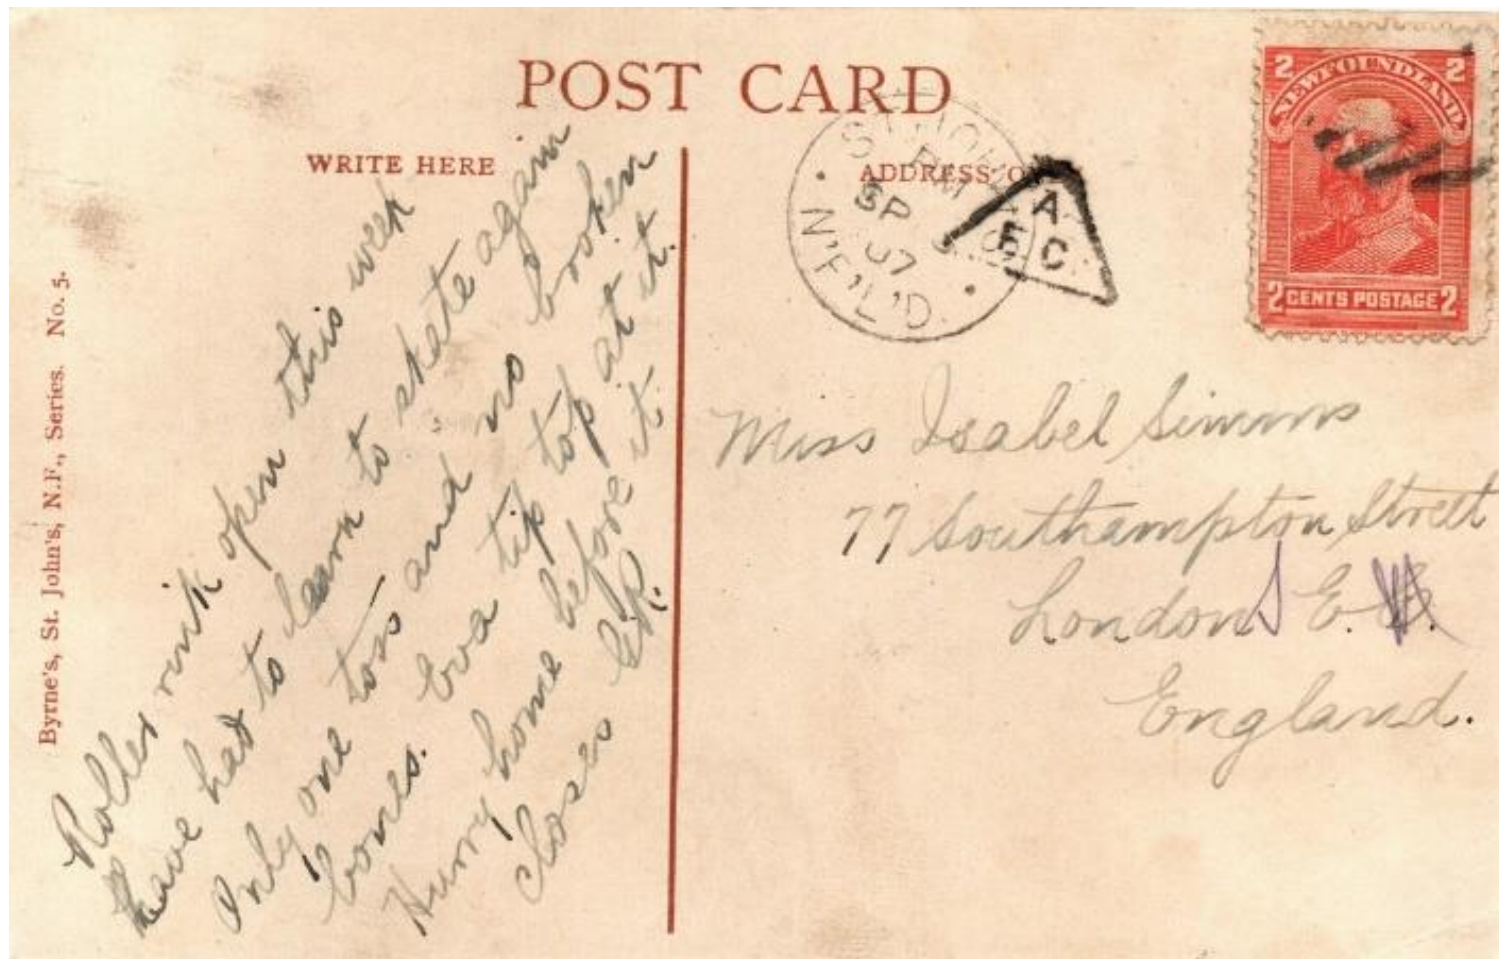 POST CARD
WRITE HERE
ADDRESS
Byrne's, St. John's, N.F., Series. No. 5.
Roller rink open this week
have had to learn to skate again
Only one toss and no broken
bones. Eva tip top at it.
Hurry home before it
closes
ST. JOHN'S
PM
SP
07
N'F'L'D.
A
F C
2 2
NEWFOUNDLAND
2 CENTS POSTAGE 2
Miss Isabel Simms
77 Southampton Street
London S E.
England.